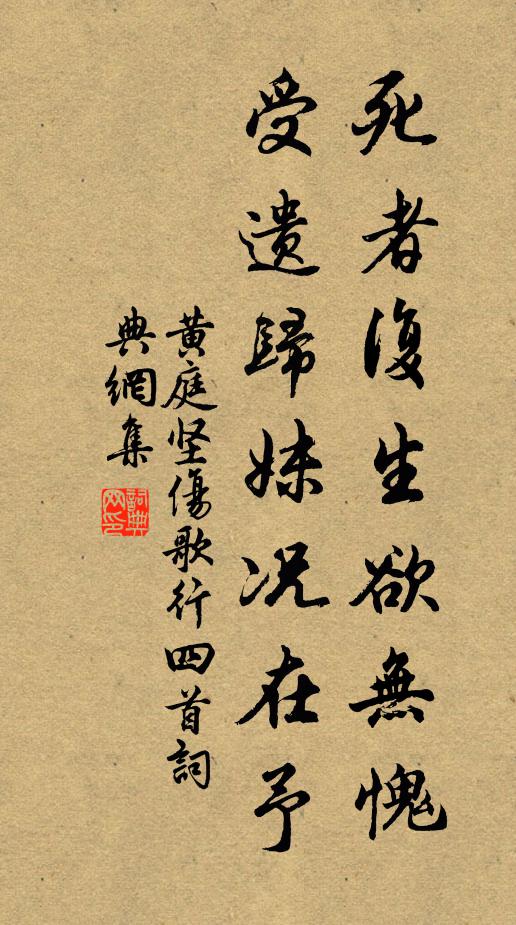 死者復生欲無愧
受遗歸妹况在予
黃庭坚傷歌行四首詞
典網集
詞典网印